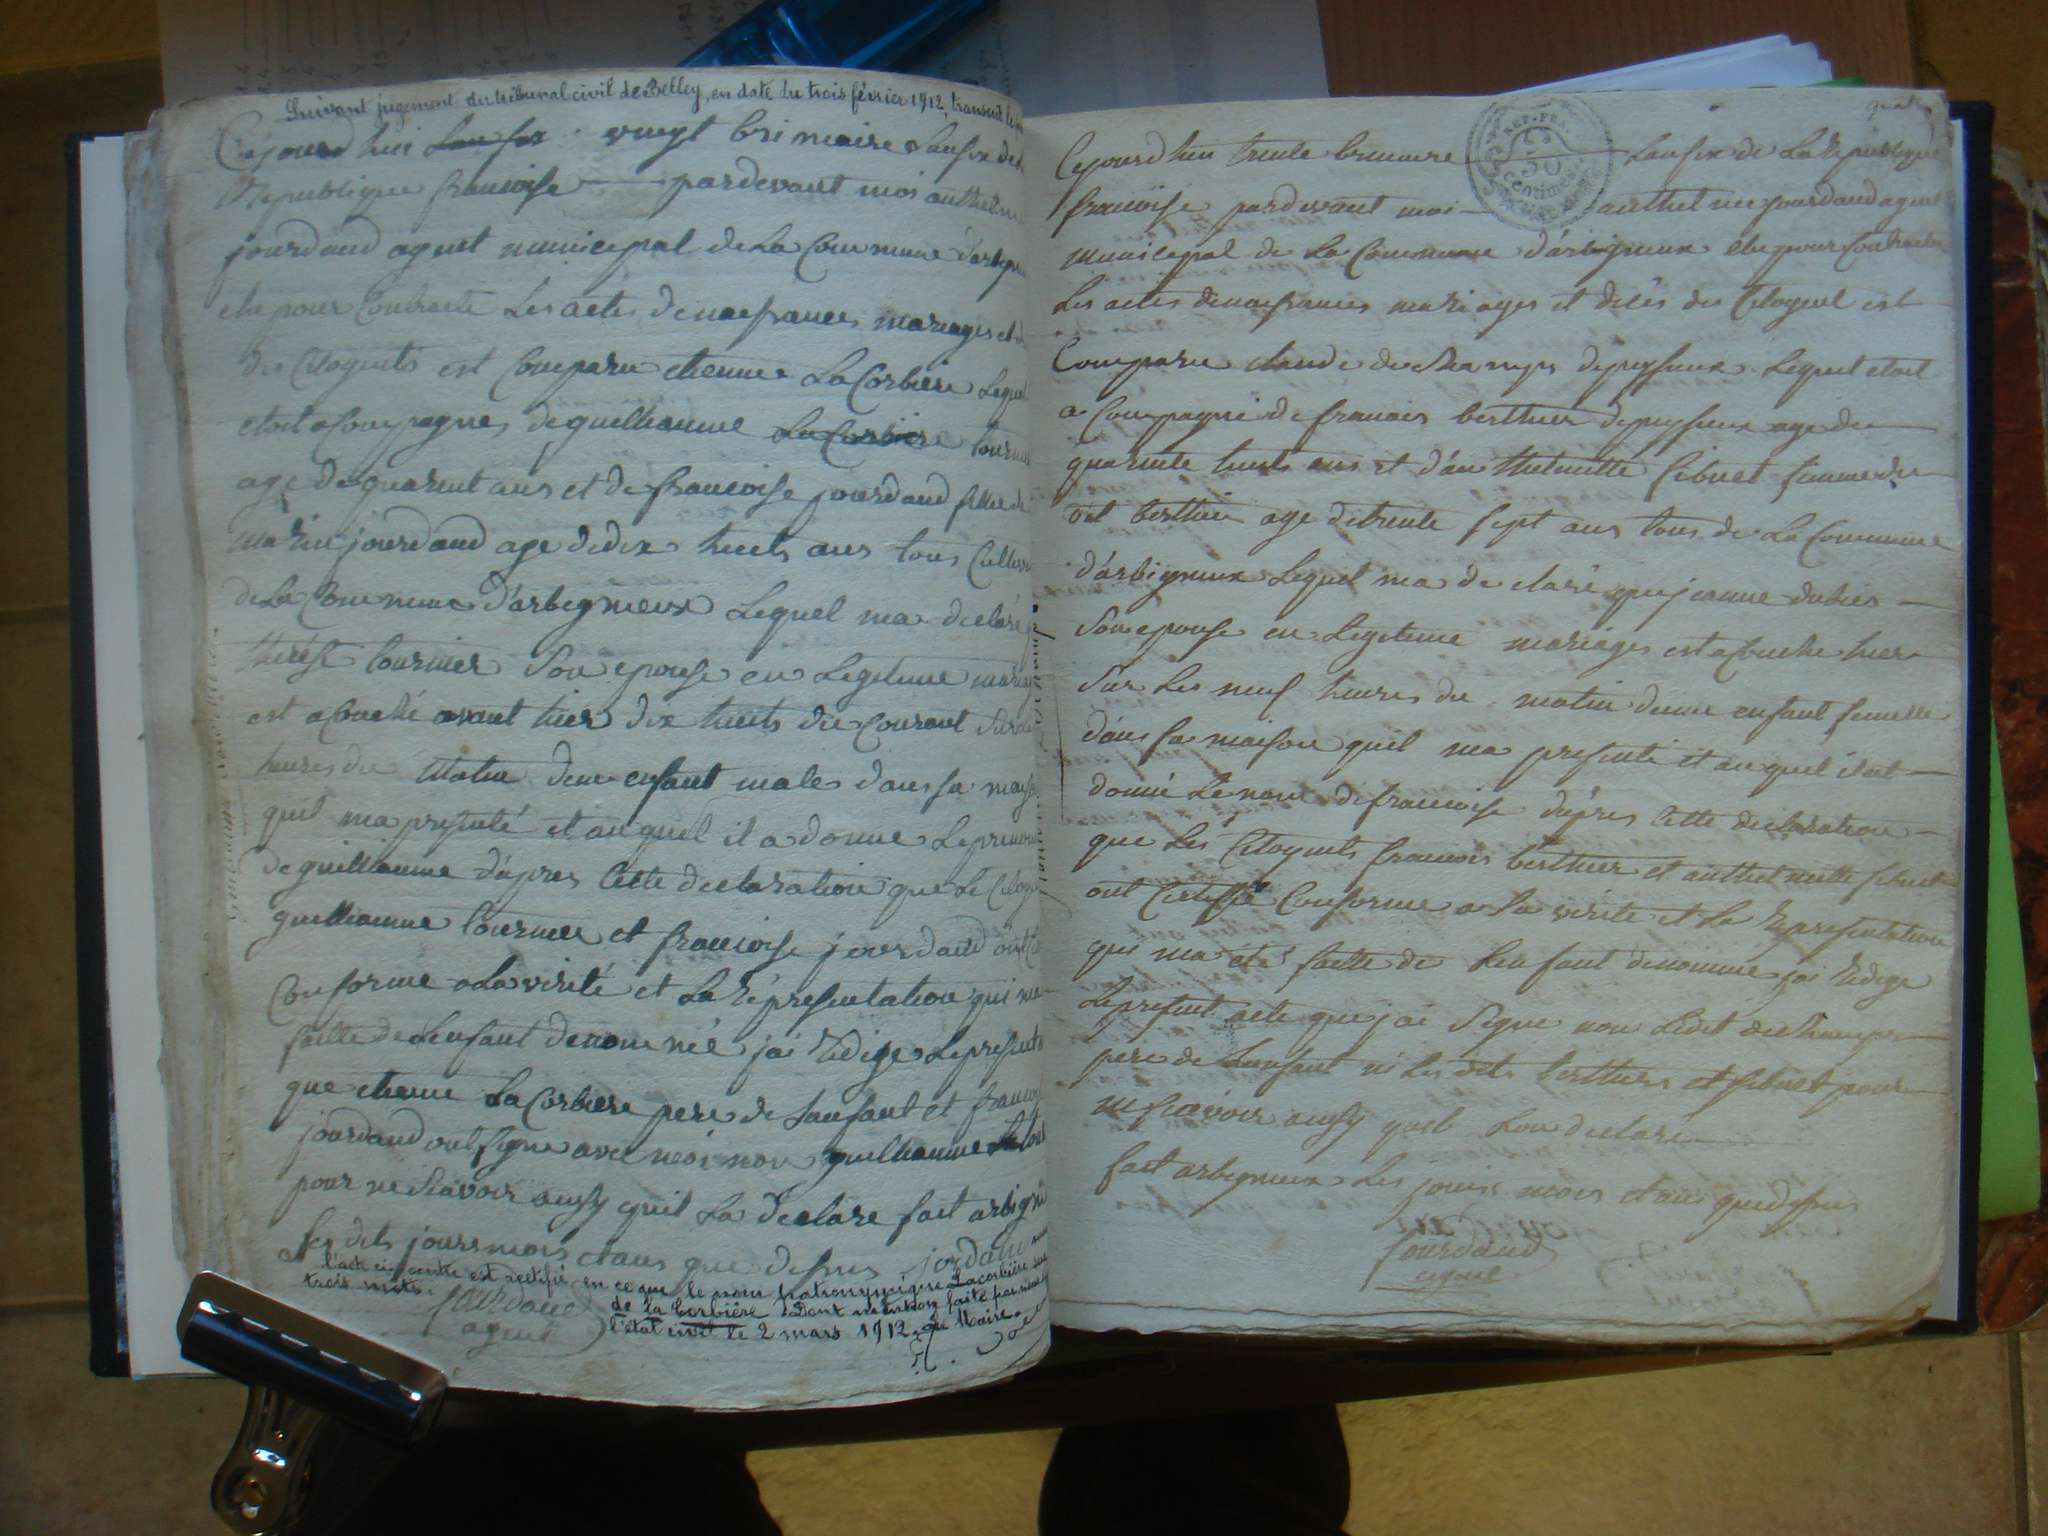 Suivant jugement du tribunal civil de Belley, en date du trois février 1912, transcrit le
Cejourd hui Lan six vingt brimaire Lansix de
Republique francoise pardevant moi authelm
jourdand agent municipal de La Commune d'arbign
elu pour Contracte Les actes denaissances mariages et
des Citoyents est Comparu etienne LaCorbiere Lequel
etoit acompagnes de guilliaume LaCorbiere tournie
age de quarent ans et de francoise jourdand fille de
marin jourdand age dedix huits ans tous Cultiv
de La Commune d'arbignieux Lequel ma declaré
therese tournier Son epouse en Legitime mariag
est acouché avant hier dix huits du Courant Sur
heures du Matin dun enfant males dans sa maiso
quil ma presenté et auquel il a donne Leprenom
de guilliaume d'apres Cette declaration que Le Citoye
guilliaume tournier et francoise jourdand ont
Conforme a La verité et La representation qui ma
faitte de Lenfant denommé jai redige Lepresent
que etienne LaCorbiere pere de Lanfant et francois
jourdand ont signe avec moi non guilliaume tour
pour ne Scavoir ausy quil La declare fait arbigni
Les dits jours mois et ans que dessus jordain
l'acte ci-contre est rectifié en ce que le nom patronymique Lacorbière
trois mots.
de La Corbière. Dont mention faite par
l'état civil le 2 mars 1912. Le Maire.
jourdand
agent
quat
REP. FRA.
50
centimes
Cejourd hui trente brumaire Lansix de La Republique
francoise pardevant moi authelme jourdand agent
municipal de La Commune d'arbignieux elu pour Contracter
Les actes denaissances mariages et decés des Citoyent est
Comparu claude deschamps depeysieux Lequel etoit
acompagné de francois berthier depeysieux age de
quarente huits ans et d'anthelmette sibuet femme du
dit berthier age detrente sept ans tous de La Commune
d'arbignieux Lequel ma declaré que jeanne dubies
Son epouse en Legitime mariages est acouche hier
Sur Les neuf heures du matin dune enfant femelle
dans sa maison quil ma presenté et auquel il at
donné Le nom de francoise d'apres Cette declaration
que Les Citoyents francois berthier et anthelmette sibuet
ont Certiffié Conforme a La verite et La representation
qui ma été faitte de Lenfant denomme jai redige
Lepresent acte que jai Signe non Ledit deschamps
pere de Lanfant ni Les dits berthier et sibuet pour
ne scavoir ausy quil Lon declaré
fait arbignieux Les jours mois et an que dessus
jourdand
agent